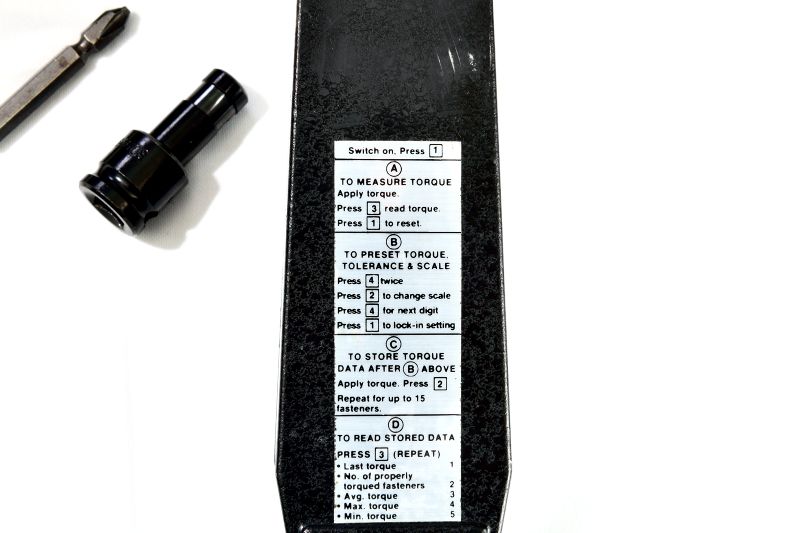 Switch on. Press 1
A
TO MEASURE TORQUE
Apply torque.
Press 3 read torque.
Press 1 to reset.
B
TO PRESET TORQUE.
TOLERANCE & SCALE
Press 4 twice
Press 2 to change scale
Press 4 for next digit
Press 1 to lock-in setting
C
TO STORE TORQUE
DATA AFTER B ABOVE
Apply torque. Press 2
Repeat for up to 15
fasteners.
D
TO READ STORED DATA
PRESS 3 (REPEAT)
• Last torque 1
• No. of properly
torqued fasteners 2
• Avg. torque 3
• Max. torque 4
• Min. torque 5